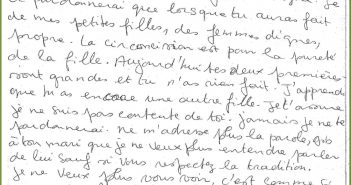 je
te pardonnerai que lorsque tu auras fait
de mes petites filles, des femmes dignes,
propre. La circoncision est pour la pureté
de la fille. Aujourd'hui tes deux premières
sont grandes et tu n'as rien fait. J'apprend
que tu as encore une autre fille. Je t'assure
je ne suis pas contente de toi. Jamais je ne te
pardonnerai. Ne m'adresse plus la parole, dis
à ton mari que je ne veux plus entendre parler
de lui sauf si vous respectez la tradition.
Je ne veux plus vous voir, c'est comme si